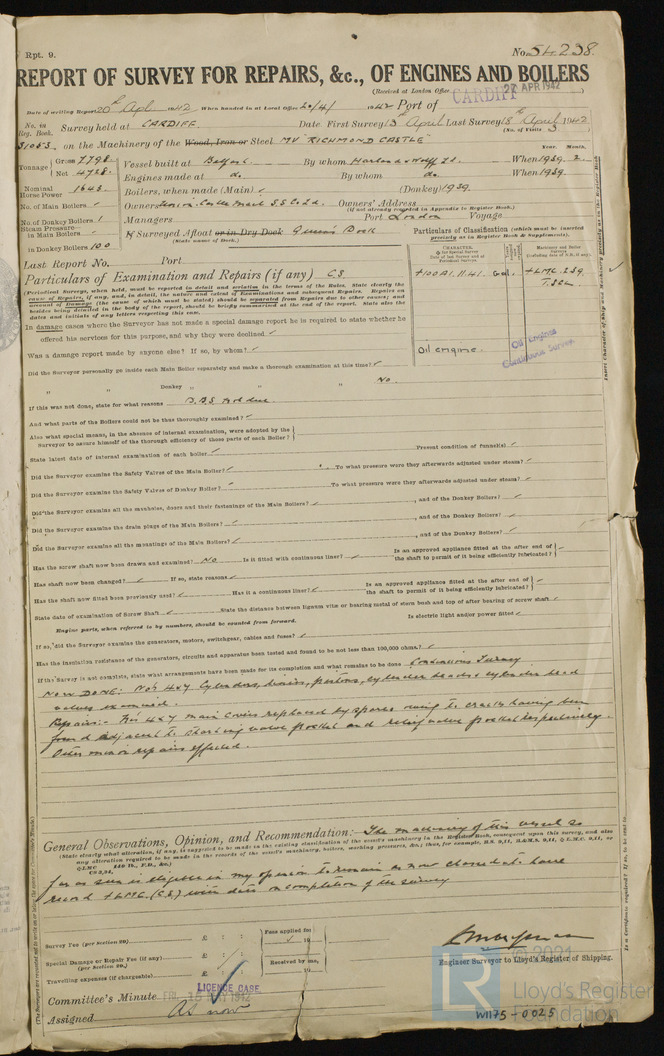 Rpt. 9.
No. 54238
REPORT OF SURVEY FOR REPAIRS, &c., OF ENGINES AND BOILERS
(Received at London Office 27 APR 1942
CARDIFF
Date of writing Report 20th Apl. 1942 When handed in at Local Office 20/4/ 1942 Port of
No. in Reg. Book.
Survey held at CARDIFF. Date First Survey 13th April Last Survey 18th April 1942
(No. of Visits 3)
31053 on the Machinery of the Wood, Iron or Steel MV "RICHMOND CASTLE"
Year. Month.
Tonnage
Gross 7798
Net 4728
Vessel built at Belfast By whom Harland & Wolff Ld. When 1939. 2.
Engines made at do. By whom do. When 1939.
Nominal Horse Power 1643
Boilers, when made (Main) ✓ (Donkey) 1939.
No. of Main Boilers ✓
Owners Union Castle Mail S.S. Co. Ld. Owners' Address
(if not already recorded in Appendix to Register Book.)
No. of Donkey Boilers 1
Managers Port London Voyage
Steam Pressure—
in Main Boilers ✓
in Donkey Boilers 100
If Surveyed Afloat or in Dry Dock Queens Dock
(State name of Dock.)
Particulars of Classification (which must be inserted precisely as in Register Book & Supplements).
Last Report No. Port
Particulars of Examination and Repairs (if any) CS
+100A1. 11.41
+LMC 2.39.
Oil engine.
Oil Engines
Continuous Survey
(Periodical Surveys, when held, must be reported in detail and seriatim in the terms of the Rules. State clearly the
cause of Repairs, if any, and, in detail, the nature and extent of Examinations and subsequent Repairs. Repairs on
account of Damage (the cause of which must be stated) should be separated from Repairs due to other causes; and
besides being detailed in the body of the report, should be briefly summarised at the end of the report. State also the
dates and initials of any letters respecting this case.
In damage cases where the Surveyor has not made a special damage report he is required to state whether he
offered his services for this purpose, and why they were declined ✓
Was a damage report made by anyone else? If so, by whom? ✓
Did the Surveyor personally go inside each Main Boiler separately and make a thorough examination at this time? ✓
" Donkey " " " No.
If this was not done, state for what reasons
And what parts of the Boilers could not be thus thoroughly examined? ✓
Also what special means, in the absence of internal examination, were adopted by the
Surveyor to assure himself of the thorough efficiency of those parts of each Boiler?
State latest date of internal examination of each boiler Present condition of funnel(s) ✓
Did the Surveyor examine the Safety Valves of the Main Boiler? ✓ To what pressure were they afterwards adjusted under steam? ✓
Did the Surveyor examine the Safety Valves of Donkey Boiler? ✓ To what pressure were they afterwards adjusted under steam? ✓
Did the Surveyor examine all the manholes, doors and their fastenings of the Main Boilers? ✓, and of the Donkey Boilers? ✓
Did the Surveyor examine the drain plugs of the Main Boilers? ✓, and of the Donkey Boilers? ✓
Did the Surveyor examine all the mountings of the Main Boilers? ✓, and of the Donkey Boilers? ✓
Has the screw shaft now been drawn and examined? No Is it fitted with continuous liner? ✓ Is an approved appliance fitted at the after end of
the shaft to permit of it being efficiently lubricated? ✓
Has shaft now been changed? ✓ If so, state reasons ✓
Has the shaft now fitted been previously used? ✓ Has it a continuous liner? ✓ Is an approved appliance fitted at the after end of
the shaft to permit of it being efficiently lubricated? ✓
State date of examination of Screw Shaft ✓ State the distance between lignum vitæ or bearing metal of stern bush and top of after bearing of screw shaft ✓
Engine parts, when referred to by numbers, should be counted from forward. Is electric light and/or power fitted ✓
If so, did the Surveyor examine the generators, motors, switchgear, cables and fuses? ✓
Has the insulation resistance of the generators, circuits and apparatus been tested and found to be not less than 100,000 ohms? ✓
If the Survey is not complete, state what arrangements have been made for its completion and what remains to be done Continuous Survey
NOW DONE: No's 4 & 7 Cylinders, liners, pistons, cylinder heads & cylinder head
valves examined.
Repairs:- No's 4 & 7 main covers replaced by spares owing to cracks having been
found adjacent to starting valve pocket and relief valve pocket respectively.
Other minor repairs effected.
General Observations, Opinion, and Recommendation:— The machinery of this vessel so
(State clearly what alteration, if any, is suggested to be made in the existing classification of the vessel's machinery in the Register Book, consequent upon this survey, and also
any alteration required to be made in the records of the vessel's machinery, boilers, working pressures, &c.; thus, for example, B.S. 9,11, B.&M.S. 9,11,
far as seen is eligible in my opinion to remain as now classed & to have
record +LMC (CS) with date on completion of the survey
Survey Fee (per Section 29) £ : :
Fees applied for
19
Special Damage or Repair Fee (if any)
(per Section 29.) £ : :
Received by me,
Travelling expenses (if chargeable) £ : :
19
Engineer Surveyor to Lloyd's Register of Shipping.
LICENCE CASE
Committee's Minute FRI. 15 MAY 1942
Assigned As now
© 2021
LR
Lloyd's Register
Foundation
W1175-0025